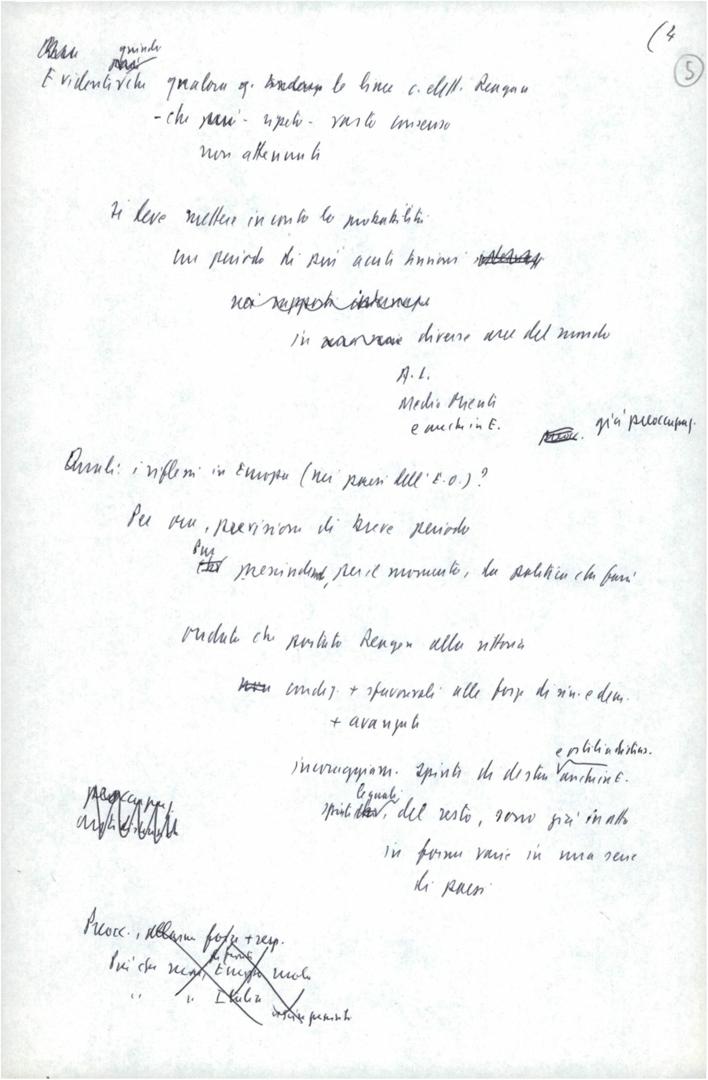 (4
5
quindi
Evidente che qualora si le linee c. dett. Reagan
- che può - ripeto - vasto consenso
non attenuati
si deve mettere in conto la probabilità
un periodo di più acuti tensioni
nei rapporti internaz
in diverse aree del mondo
A.L.
Medio Orienti
e anche in E.
già preoccupaz.
Quali i riflessi in Europa (nei paesi dell'E.O.)?
Per ora, previsione di breve periodo
Pur
prescindend, per il momento, da politica che farà
ondata che portato Reagan alla vittoria
condiz. + sfavorevoli alle forze di sin. e dem.
+ avanzati
e ostilità distens.
incoraggiam. spinte di destra anche in E.
le quali
spinte, del resto, sono già in atto
in forme varie in una serie
di paesi
preoccupaz.
Preocc., allarme forze + resp.
Più che mai, Europa
" " Italia